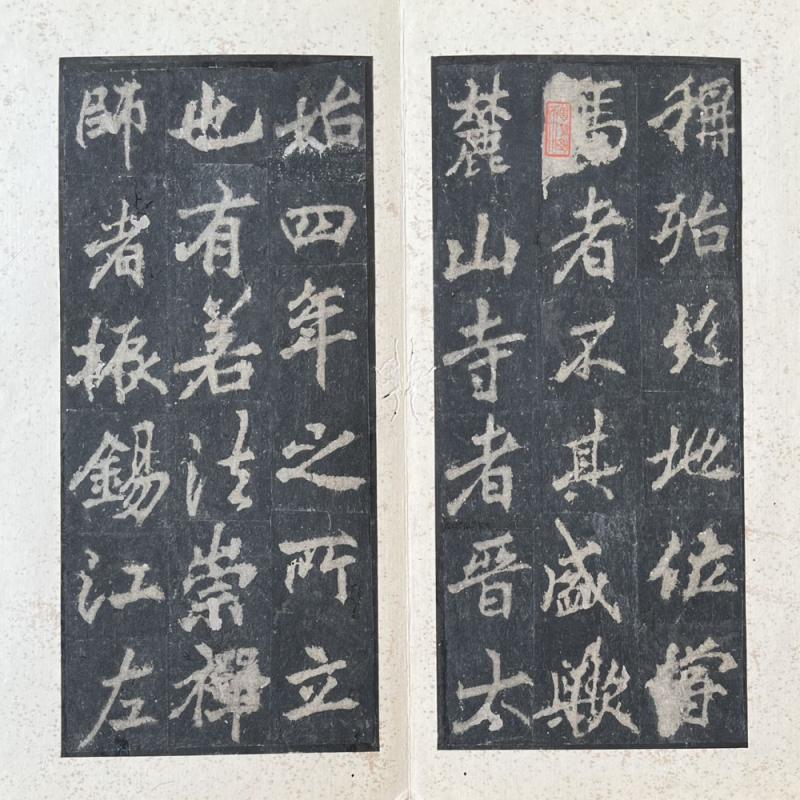 稱殆絕地位嘗
高者不其盛歟
麓山寺者晉太
始四年之所立
也有若法崇禪
師者振錫江左